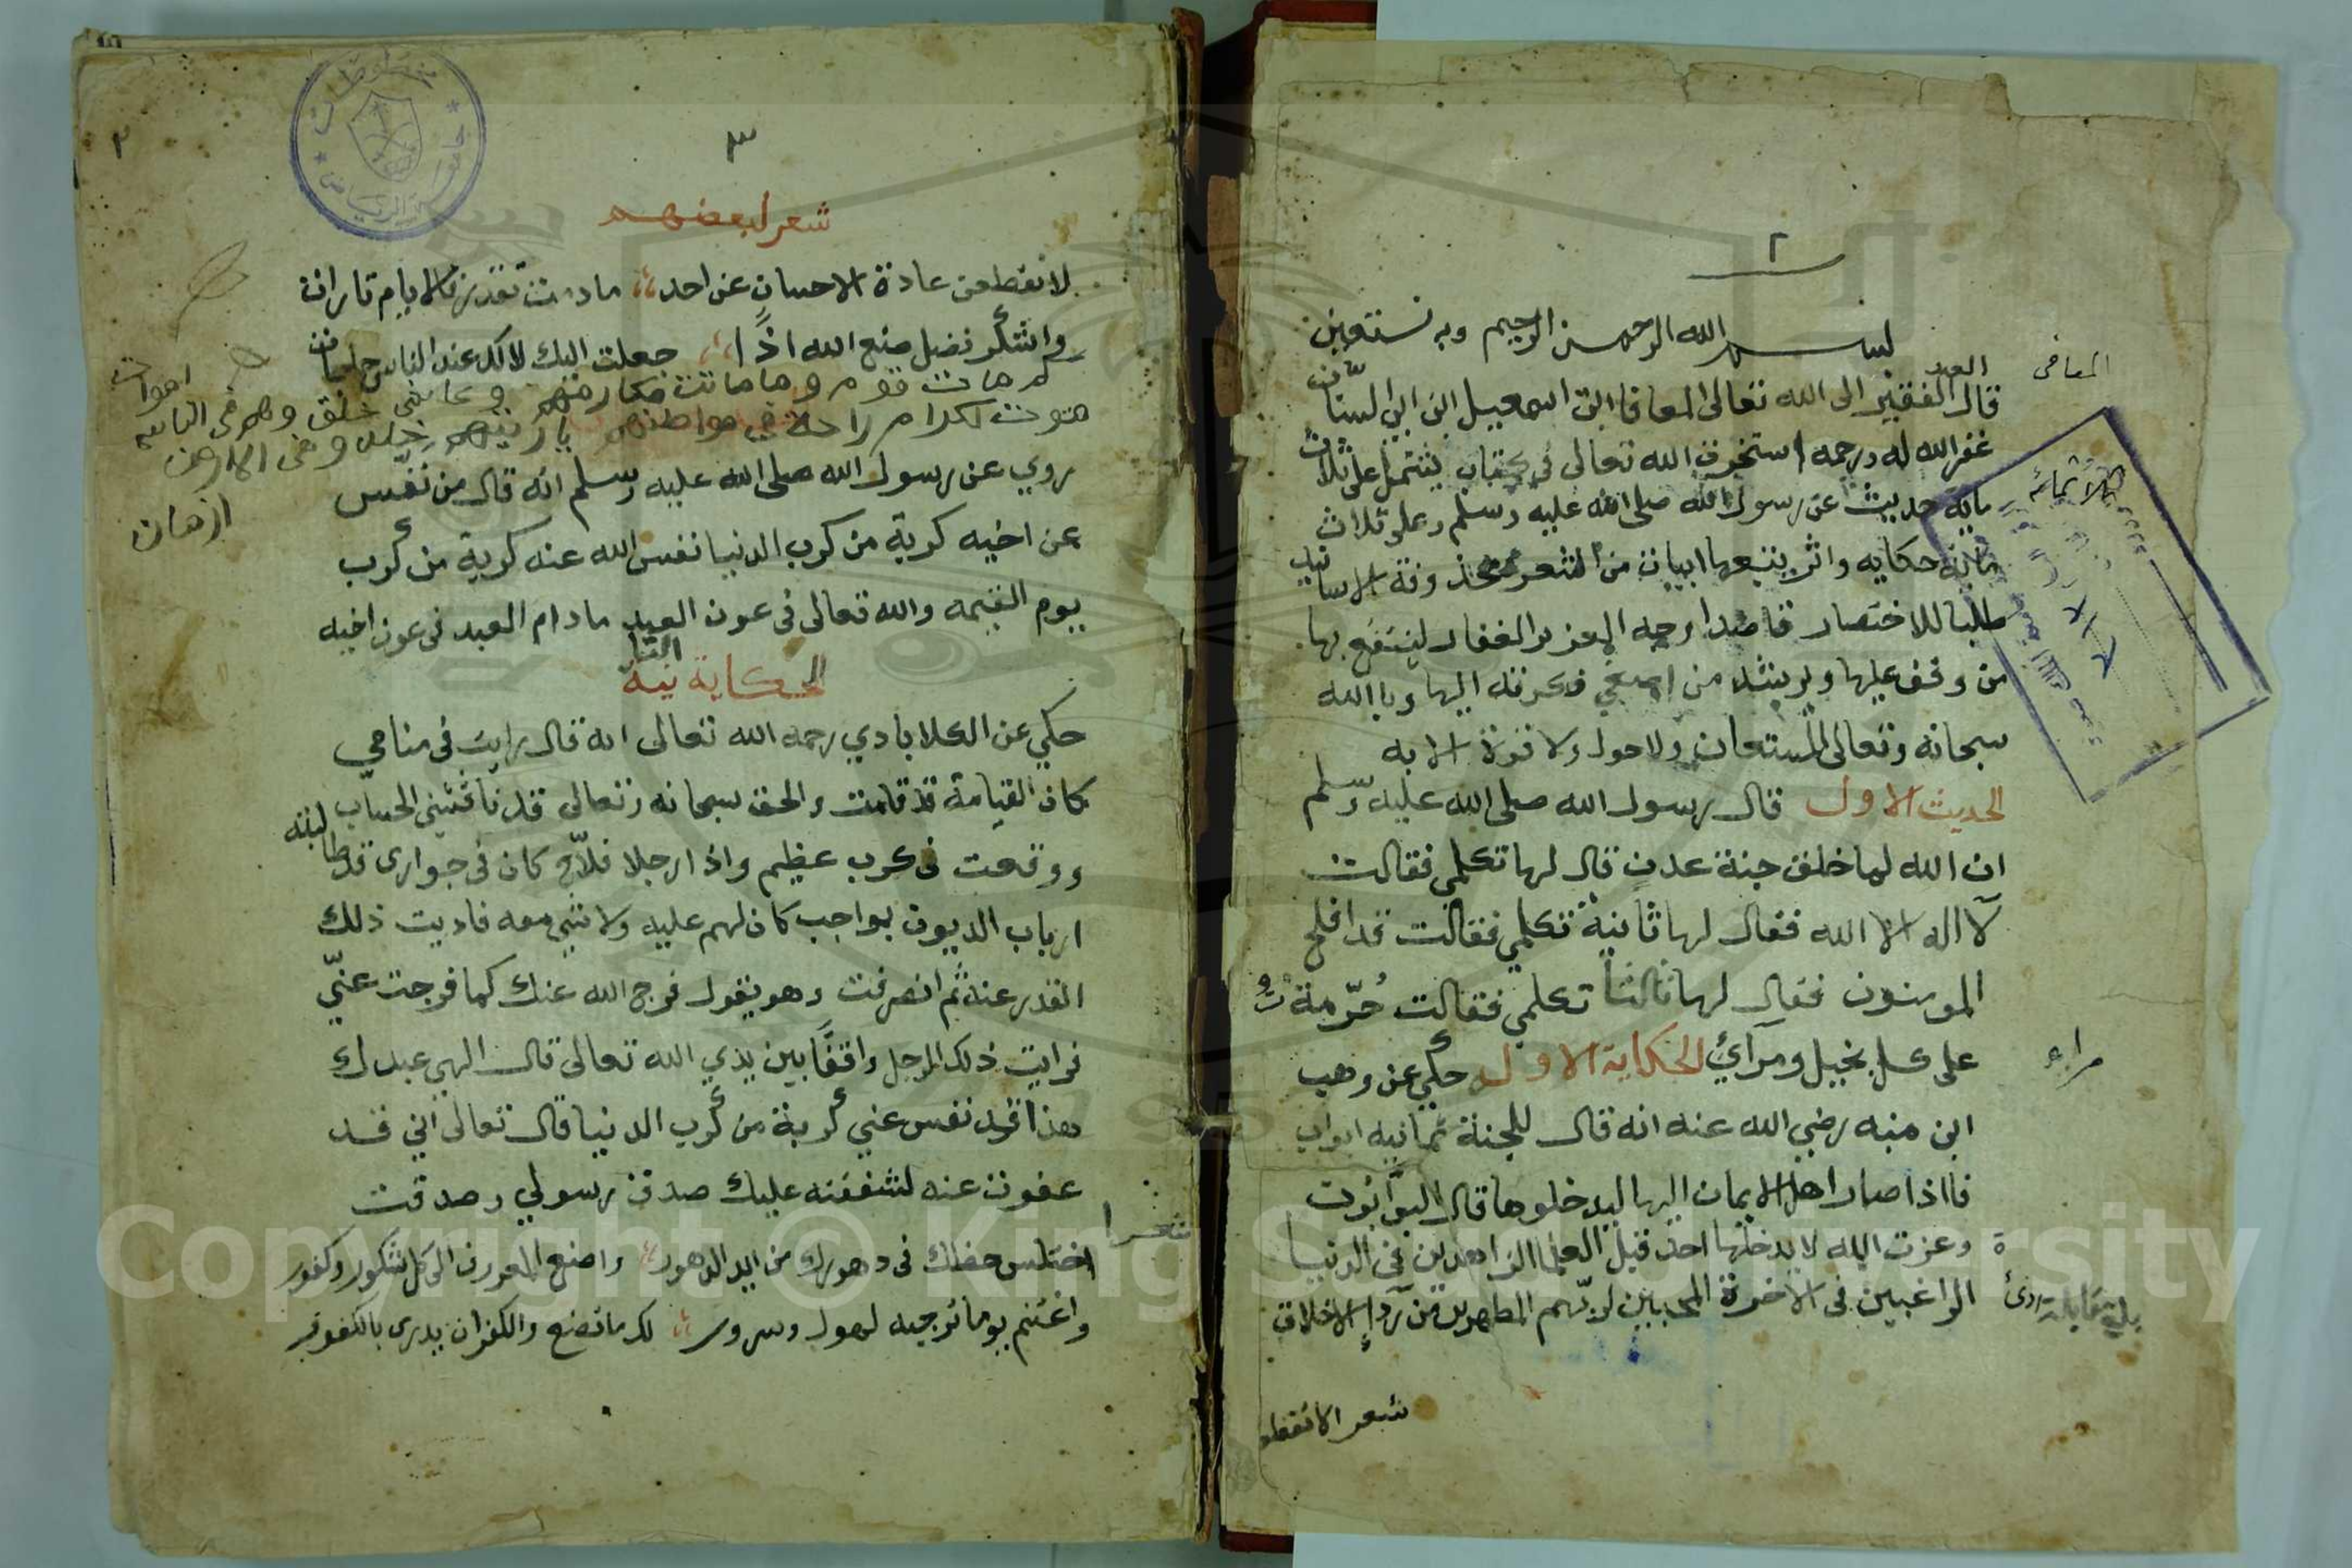 ٢
بسم الله الرحمن الرحيم وبه نستعين
المعافى
العبد
قال الفقير الى الله تعالى المعافا ابن اسمعيل ابن ابي السنان
غفر الله له ورحمه استخرت الله تعالى في كتاب يشتمل على ثلاث
ماية حديث عن رسول الله صلى الله عليه وسلم وعلى ثلاث
ماية حكايه واثر يتبعها ابيات من الشعر محذوفة الاسانيد
طلبا للاختصار قاصدا وجه العزيز الغفار لينتفع بها
من وقف عليها ويرشد من اصغى فكرته اليها وبا الله
سبحانه وتعالى المستعان ولا حول ولا قوة الا به
الحديث الاول قال رسول الله صلى الله عليه وسلم
ان الله لما خلق جنة عدن قال لها تكلمي فقالت
لا اله الا الله فقال لها ثانية تكلمي فقالت قد افلح
المومنون فقال لها ثالثا تكلمي فقالت حُرّمة
على كل بخيل ومرآئ الحكاية الاولى حُكي عن وهب
مراء
ابن منبه رضي الله عنه انه قال للجنة ثمانيه ابواب
فااذا صار اهل الايمان اليها ليدخلوها قال البوّابون
وعزت الله لا يدخلها احد قبل العلما الزاهدين في الدنيا
ة
الراغبين في الاخرة المحبين لربهم المطهرين من الاخلاق
شعر لا تقطعن
٣
٢
شعر لبعضهم
لا تقطعن عادة الاحسان عن احد ما دمت تقدر فالايام تارات
واشكُر فضل صنع الله اذ جعلت اليك لا لك عند الناس حاجات
كم مات قوم وما ماتت مكارمهم وعاش خلق وهم في الناس اموات
روي عن رسول الله صلى الله عليه وسلم انه قال من نفّس
عن اخيه كربة من كرب الدنيا نفس الله عنه كربة من كُرب
يوم القيمه والله تعالى في عون العبد ما دام العبد في عون اخيه
الحكاية الثانية
حكي عن الكلاباذي رحمه الله تعالى انه قال رايت في منامي
كان القيامة قد قامت والحق سبحانه وتعالى قد ناقشني الحساب
ووقعت في كرب عظيم واذا رجلا فلاح كان في جواري قد طالبته
ارباب الديون بواجب كان لهم عليه ولا شي معه فاديت ذلك
القدر عنه ثم انصرفت وهو يقول فرج الله عنك كما فرجت عنّي
فرايت ذلك الرجل واقفًا بين يدي الله تعالى قال الهي عبدك
هذا قد نفس عني كُربة من كُرب الدنيا قال تعالى اني قد
عفوت عنه لشفقته عليك صدق رسولي وصدقت
شعرا
اختلس حظك في دهرك من ايد الدهور واصنع المعروف الى كل شكور وكفور
واغتنم يوما ترجيه لهول وسرور لك ما تصنع والكفران يدري بالكفور
Copyright © King Saud University